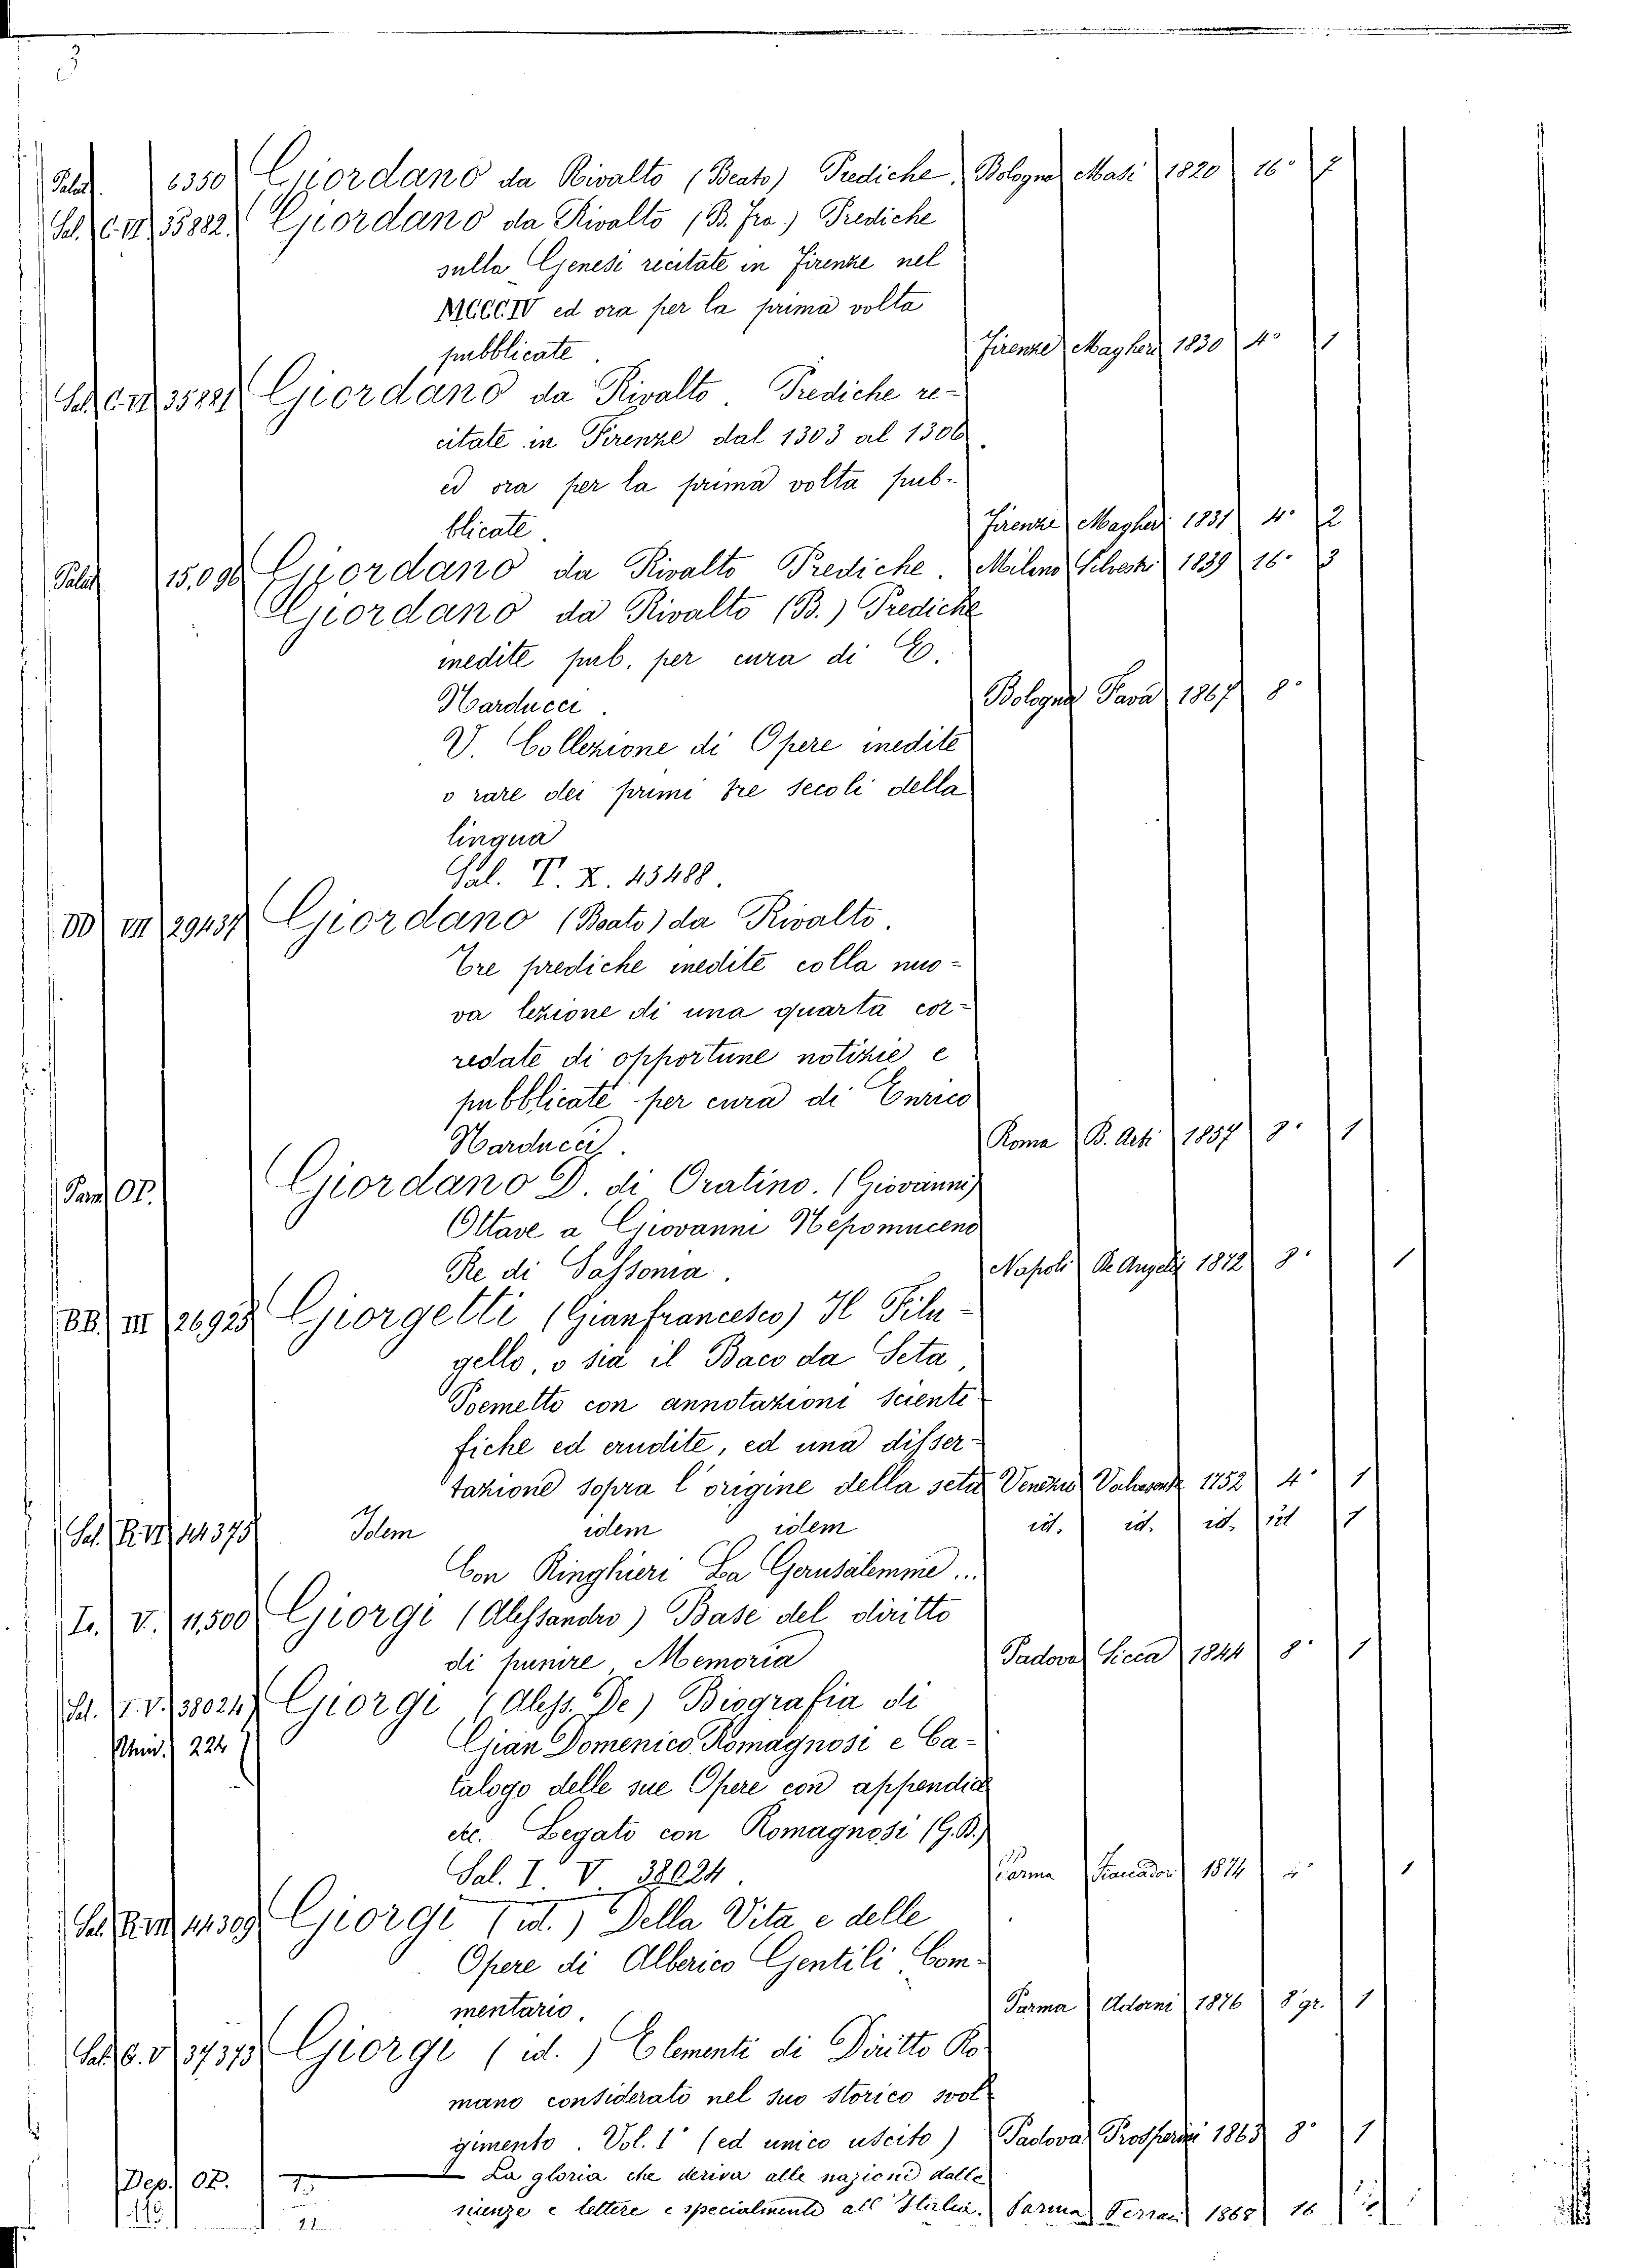 Palat. 6350 Giordano da Rivalto (Beato) Prediche. Bologna Masi 1820 16° 7
Sal. C. VI 35882. Giordano da Rivalto (B. Fra.) Prediche
sulla Genesi recitate in Firenze nel
MCCCIV ed ora per la prima volta
pubblicate. Firenze Magheri 1830 4° 1
Sal. C. VI 35881 Giordano da Rivalto. Prediche re-
citate in Firenze dal 1303 al 1306
ed ora per la prima volta pub-
blicate. Firenze Magheri 1831 4° 2
Palat 15,096 Giordano da Rivalto Prediche. Milano Silvestri 1839 16° 3
Giordano da Rivalto (B.) Prediche
inedite pub. per cura di E.
Narducci. Bologna Fava 1867 8°
V. Collezione di Opere inedite
o rare dei primi tre secoli della
lingua
Sal. T. X. 45488.
DD VII 29437 Giordano (Beato) da Rivalto.
Tre prediche inedite colla nuo-
va lezione di una quarta cor-
redate di opportune notizie e
pubblicate per cura di Enrico
Narducci. Roma B. Arti 1857 8° 1
Parm. OP. Giordano D. di Oratino. (Giovanni)
Ottave a Giovanni Nepomuceno
Re di Sassonia. Napoli De Angelis 1872 8° 1
BB. III 26925 Giorgetti (Gianfrancesco) Il Filu-
gello, o sia il Baco da Seta,
Poemetto con annotazioni scienti-
fiche ed erudite, ed una disser-
tazione sopra l'origine della seta Venezia Valvasense 1752 4° 1
Sal. R. VI 44375 Idem idem idem id. id. id. id 1
Con Ringhieri La Gerusalemme ...
I. V. 11,500 Giorgi (Alessandro) Base del diritto
di punire, Memoria Padova Sicca 1844 8° 1
Sal. I. V. 38024 Giorgi (Aless. De) Biografia di
224 Gian Domenico Romagnosi e Ca-
talogo delle sue Opere con appendice
etc. Legato con Romagnosi (G. B.)
Sal. I. V 38024. Parma 1874 1
Sal. R. VI 44309 Giorgi (id.) Della Vita e delle
Opere di Alberico Gentili Com-
mentario. Parma Adorni 1876 8° gr. 1
Sal. C. V 37373 Giorgi (id.) Elementi di Diritto Ro-
mano considerato nel suo storico svol-
gimento. Vol. 1° (ed unico uscito) Padova Prosperini 1863 8° 1
Dep. OP. — La gloria che deriva alle nazioni dalle
scienze e lettere e specialmente all'Italia. Parma Ferrari 1868 16